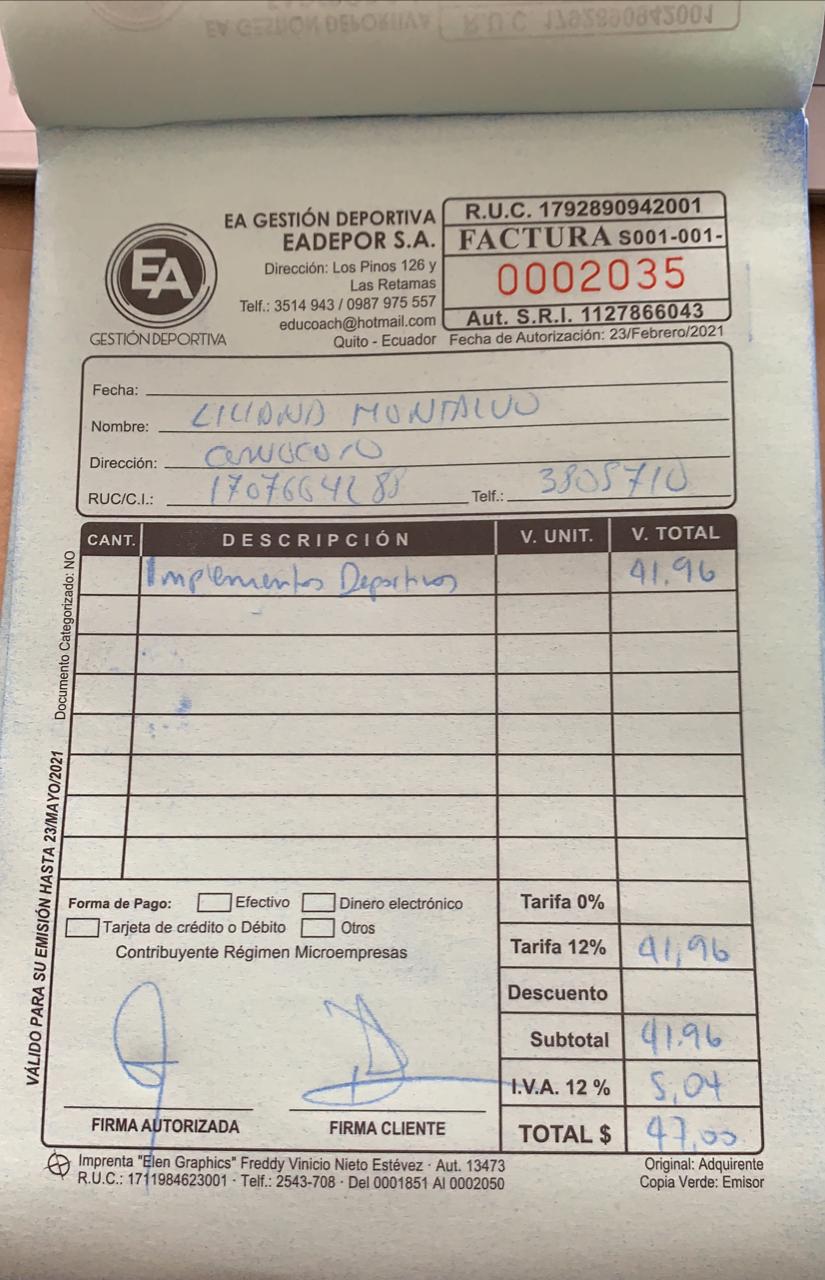 EA GESTIÓN DEPORTIVA R.U.C 1792890942001
EA
GESTIÓN DEPORTIVA
EA GESTIÓN DEPORTIVA
EADEPOR S.A.
Dirección: Los Pinos 126 y
Las Retamas
Telf.: 3514 943 / 0987 975 557
educoach@hotmail.com
Quito - Ecuador
R.U.C. 1792890942001
FACTURA S001-001-
0002035
Aut. S.R.I. 1127866043
Fecha de Autorización: 23/Febrero/2021
Fecha:
Nombre: LILIANA MONTALVO
Dirección:
RUC/C.I.: Telf.: 3805710
CANT. DESCRIPCIÓN V. UNIT. V. TOTAL
Implementos Deportivos 41.96
Documento Categorizado: NO
VÁLIDO PARA SU EMISIÓN HASTA 23/MAYO/2021
Forma de Pago: Efectivo Dinero electrónico
Tarjeta de crédito o Débito Otros
Contribuyente Régimen Microempresas
Tarifa 0%
Tarifa 12% 41,96
Descuento
Subtotal 41.96
I.V.A. 12 % 5,04
TOTAL $ 47,00
FIRMA AUTORIZADA FIRMA CLIENTE
Imprenta "Elen Graphics" Freddy Vinicio Nieto Estévez · Aut. 13473
R.U.C.: 1711984623001 · Telf.: 2543-708 · Del 0001851 Al 0002050
Original: Adquirente
Copia Verde: Emisor